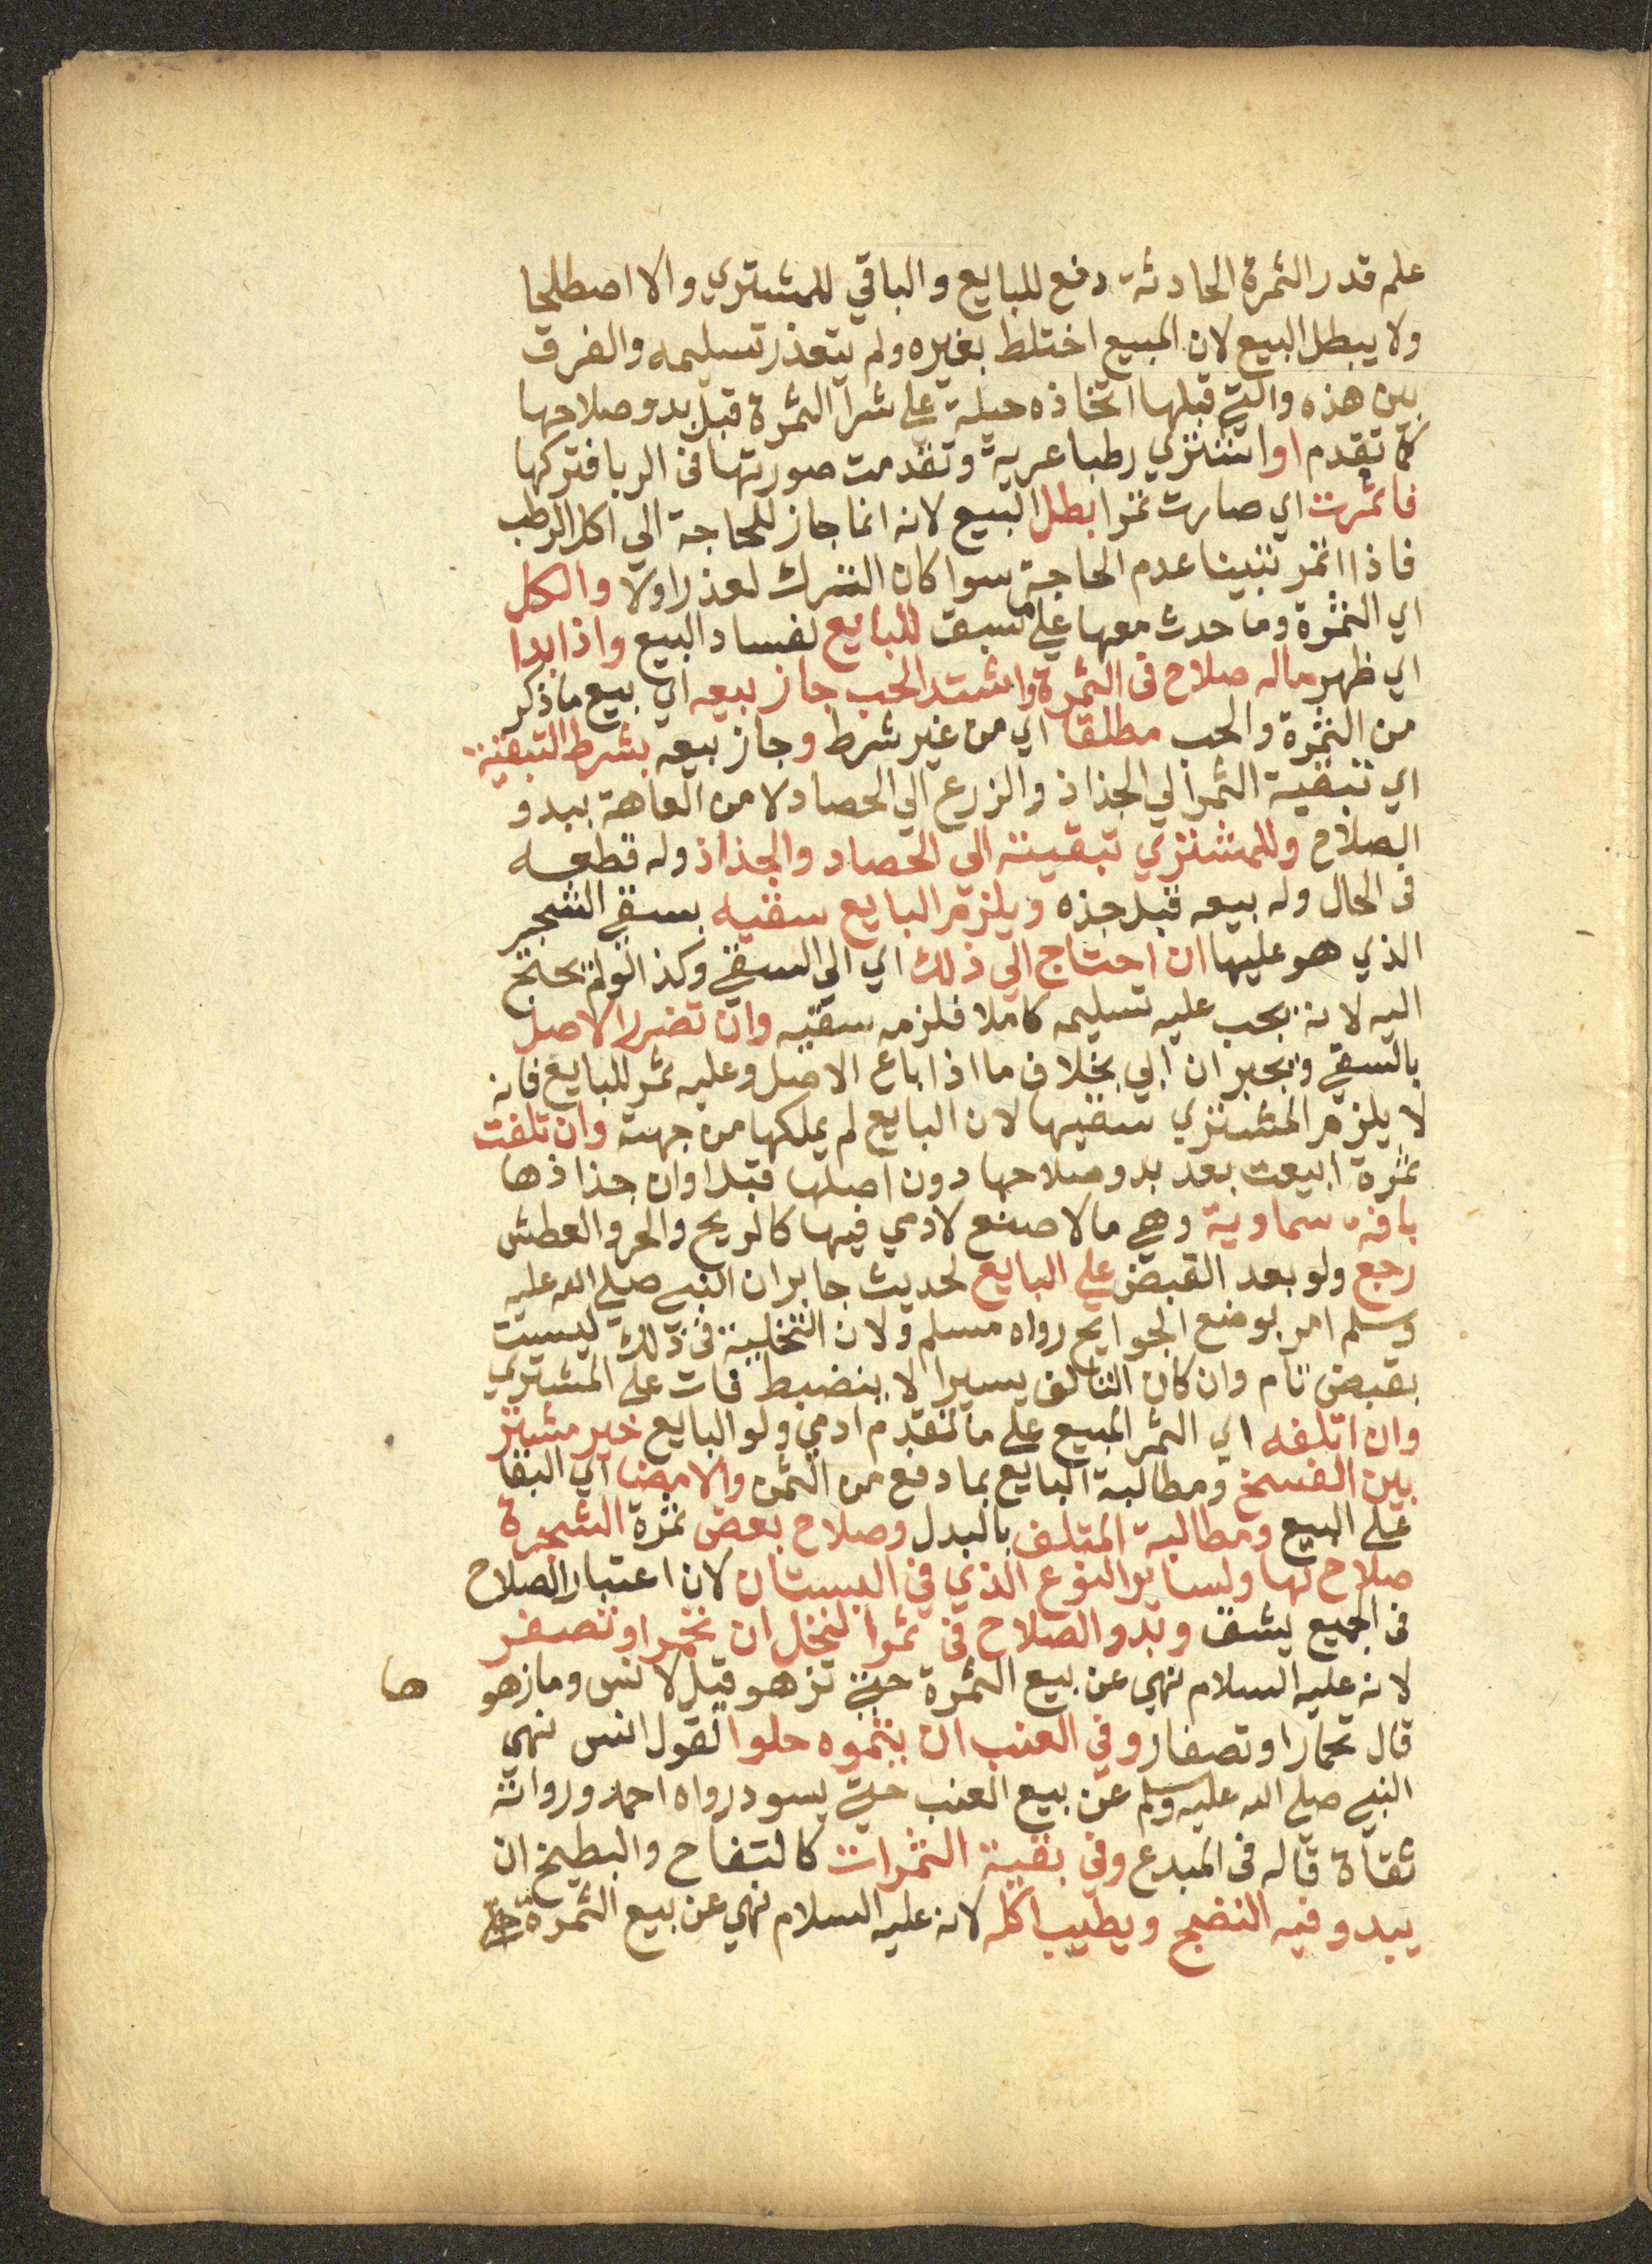 علم قدر الثمرة الحادثة دفع للبايع والباقي للمشتري والا اصطلحا
ولا يبطل البيع لان المبيع اختلط بغيره ولم يتعذر تسليمه والفرق
بين هذه والتي قبلها اتخاذه حيلة علي شرا الثمرة قبل بدو صلاحها
كما تقدم او اشتري رطبا عرية وتقدمت صورتها فى الربا فتركها
فاثمرت اي صارت تمرا بطل البيع لانه انما جاز للحاجة الي اكل الرطب
فاذا اتمر تبينا عدم الحاجة سوا كان الترك لعذر اولا والكل
اي الثمرة وما حدث معها علي ما سبق للبايع لفساد البيع واذا بدا
اي ظهر ماله صلاح فى الثمرة واشتد الحب جاز بيعه اي بيع ما ذكر
من الثمرة والحب مطلقا اي من غير شرط وجاز بيعه بشرط التبقية
اي تبقية الثمر الي الجذاذ والزرع الي الحصاد لا من العاهة ببدو
الصلاح وللمشتري تبقيته الي الحصاد والجذاذ وله قطعه
فى الحال وله بيعه قبل جذه ويلزم البايع سقيه بسقي الشجر
الذي هو عليها ان احتاج الي ذلك اي الي السقي وكذا لو لم يحتج
اليه لانه يجب عليه تسليمه كاملا فلزمه سقيه وان تضرر الاصل
بالسقي ويجبر ان ابي بخلاف ما اذا باع الاصل وعليه ثمر للبايع فانه
لا يلزم المشتري سقيها لان البايع لم يملكها من جهته وان تلفت
ثمرة ابيعت بعد بدو صلاحها دون اصلها قبل اوان جذاذها
بافة سماوية وهي ما لا صنع لادمي فيها كالريح والحر والعطش
رجع ولو بعد القبض علي البايع لحديث جابر ان النبي صلي الله عليه
وسلم امر بوضع الجوايح رواه مسلم ولان التخلية فى ذلك ليست
بقبض تام وان كان التالف يسيرا لا ينضبط فات علي المشتري
وان اتلفه اي الثمر المبيع علي ما تقدم ادمي ولو البايع خير مشتر
بين الفسخ ومطالبة البايع بما دفع من الثمن والامضا اي البقا
علي البيع ومطالبة المتلف بالبدل وصلاح بعض ثمرة الشجرة
صلاح لها ولساير النوع الذي في البستان لان اعتبار الصلاح
فى الجميع يشق وبدو الصلاح فى ثمر النخل ان تحمر او تصفر
لانه عليه السلام نهي عن بيع الثمرة حتي تزهو قيل لانس وما زهو
ها
قال تحمار او تصفار وفي العنب ان يتموه حلوا لقول انس نهي
النبي صلي الله عليه وسلم عن بيع العنب حتي يسود رواه احمد ورواته
ثقاة قاله فى المبدع وفي بقية الثمرات كالتفاح والبطيخ ان
يبدو فيه النضج ويطيب اكله لانه عليه السلام نهي عن بيع الثمرة حتي